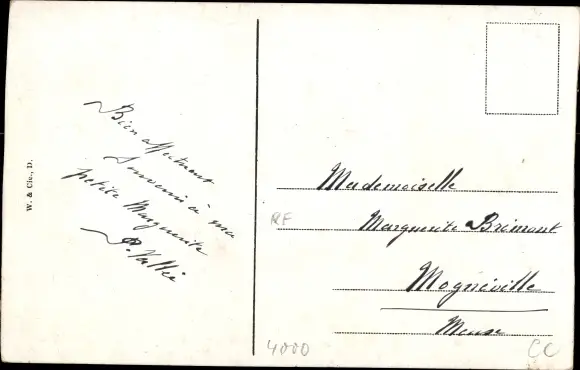 W. & Cie., D.
Bien affectueux
Souvenir à ma
petite Marguerite
P. Vallée
Mademoiselle
Marguerite Brémont
Mognéville
Meuse
RF
4000
CC